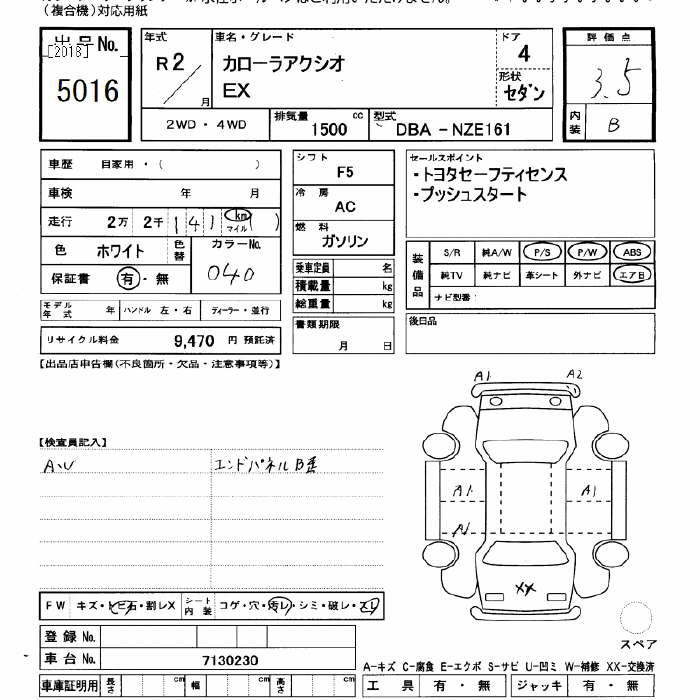 （複合機）対応用紙
出品No.
[2018]
5016
年式
R2
月
車名・グレード
カローラアクシオ
EX
ドア
4
形状
セダン
評価点
3.5
内装
B
2WD・4WD
排気量
1500 cc
型式
DBA - NZE161
車歴 自家用・（ ）
車検 年 月
走行 2万 2千 141 km マイル
色 ホワイト 色替 カラーNo. 040
保証書 有・無
モデル年式 年 ハンドル 左・右 ディーラー・並行
リサイクル料金 9,470 円 預託済
シフト F5
冷房 AC
燃料 ガソリン
乗車定員 名
積載量 kg
総重量 kg
書類期限
月 日
セールスポイント
・トヨタセーフティセンス
・プッシュスタート
装備品
S/R 純A/W P/S P/W ABS
純TV 純ナビ 革シート 外ナビ エアB
ナビ型番
後日品
【出品店申告欄（不良箇所・欠品・注意事項等）】
【検査員記入】
A、U エンドパネルB歪
A1 A2
A1 A1
A1
XX
スペア
FW キズ・トビ石・割レX シート内装 コゲ・穴・汚レ・シミ・破レ・スレ
登録No.
車台No. 7130230
車庫証明用 長さ cm 幅 cm 高さ cm
A-キズ C-腐食 E-エクボ S-サビ U-凹ミ W-補修 XX-交換済
工具 有・無 ジャッキ 有・無